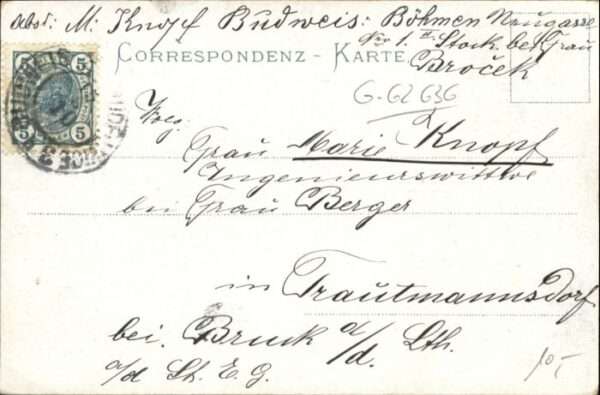 Abs.: M. Knopf Budweis: Böhmen Neugasse
No 1. II. Stock. bei Frau
Broček
CORRESPONDENZ - KARTE
G-62 636
Wolg.
Frau Marie Knopf
Ingenieurswittwe
bei Frau Berger
in Trautmannsdorf
bei Bruck a/d. Lth.
a/d St. E. G.
10,-
5 5
5 5